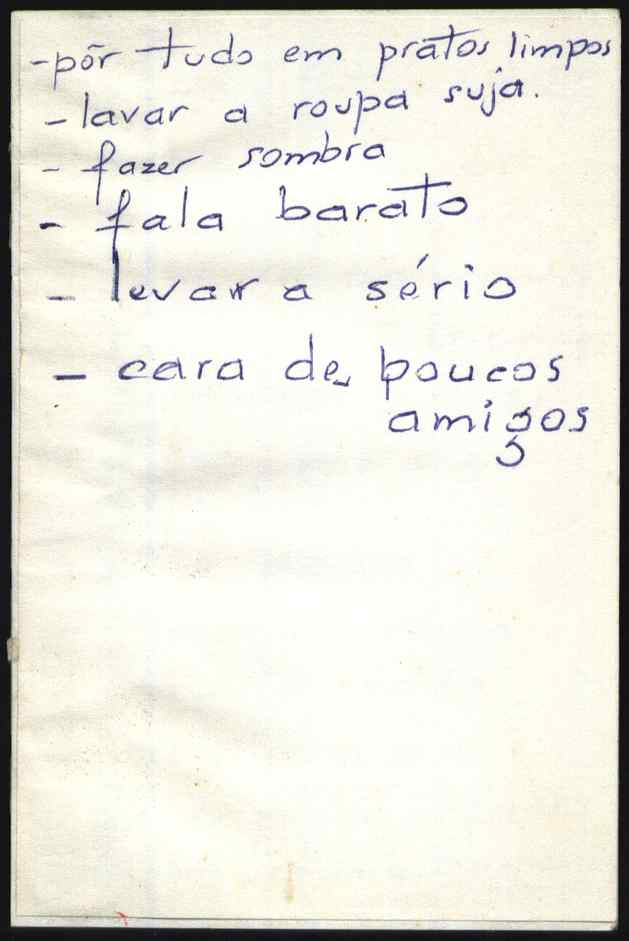 -pôr tudo em pratos limpos
- lavar a roupa suja.
- fazer sombra
- fala barato
- levar a sério
- cara de poucos
amigos